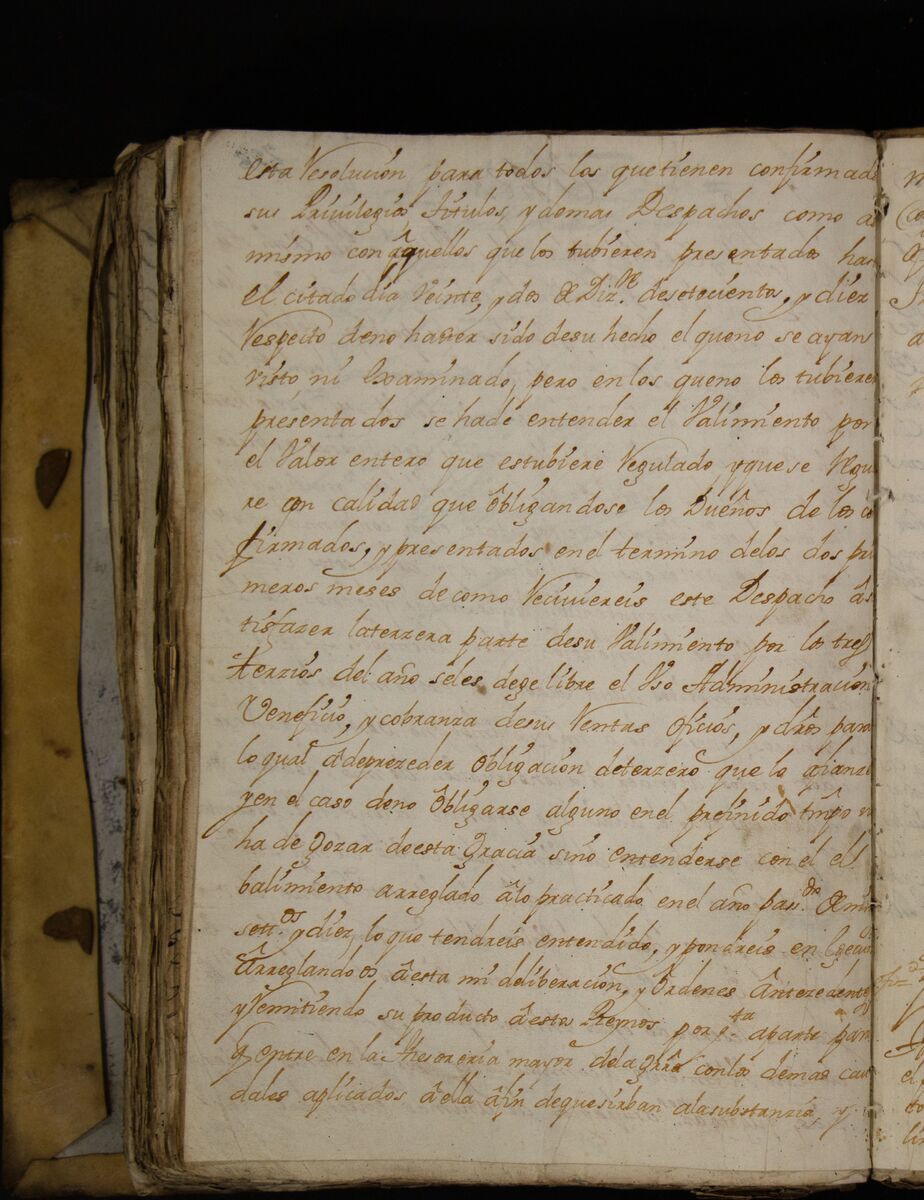 esta Resolución para todos los que tienen confirmad
sus Privilegios, títulos, y demas Despachos como a
mismo con âquellos que los tubieren presentados has
el citado dia Veinte, y dos de Diz.re de setecientos, y diez
Respecto de no haver sido de su hecho el que no se ayan
visto, ni Examinado, pero en los que no los tubieren
presentados se hade entender el Valimiento por
el Valor entero que estubiere Regulado y que se Regu
re con calidad que ôbligandose los Dueños de los co
firmados, y presentados en el termino de los dos pri
meros meses de como Reciviereis este Despacho â s
tisfazer la terzera parte de su Valimiento por los tres
terzios del año se les dege libre el Vso Administracion
Veneficio, y cobranza de sus Rentas oficios, y drôs para
lo qual â de prezeder obligacion de terzero que lo afianze
y en el caso de no ôbligarse alguno en el prefinido tmpo n
ha de gozar de esta gracia sino entenderse con el el
balimiento arreglado âlo practicado en el año pas.do de mil
sett.os y diez, lo que tendreis entendido, y pondreis en
Arreglandoos â esta mi deliberacion, y ôrdenes ântezedentes
y Remitiendo su producto â estos Reynos por aparte para
q entre en la thesoreria mayor de la con los demas cau
dales aplicados â ella âfin de que sirban a la substanzia, y